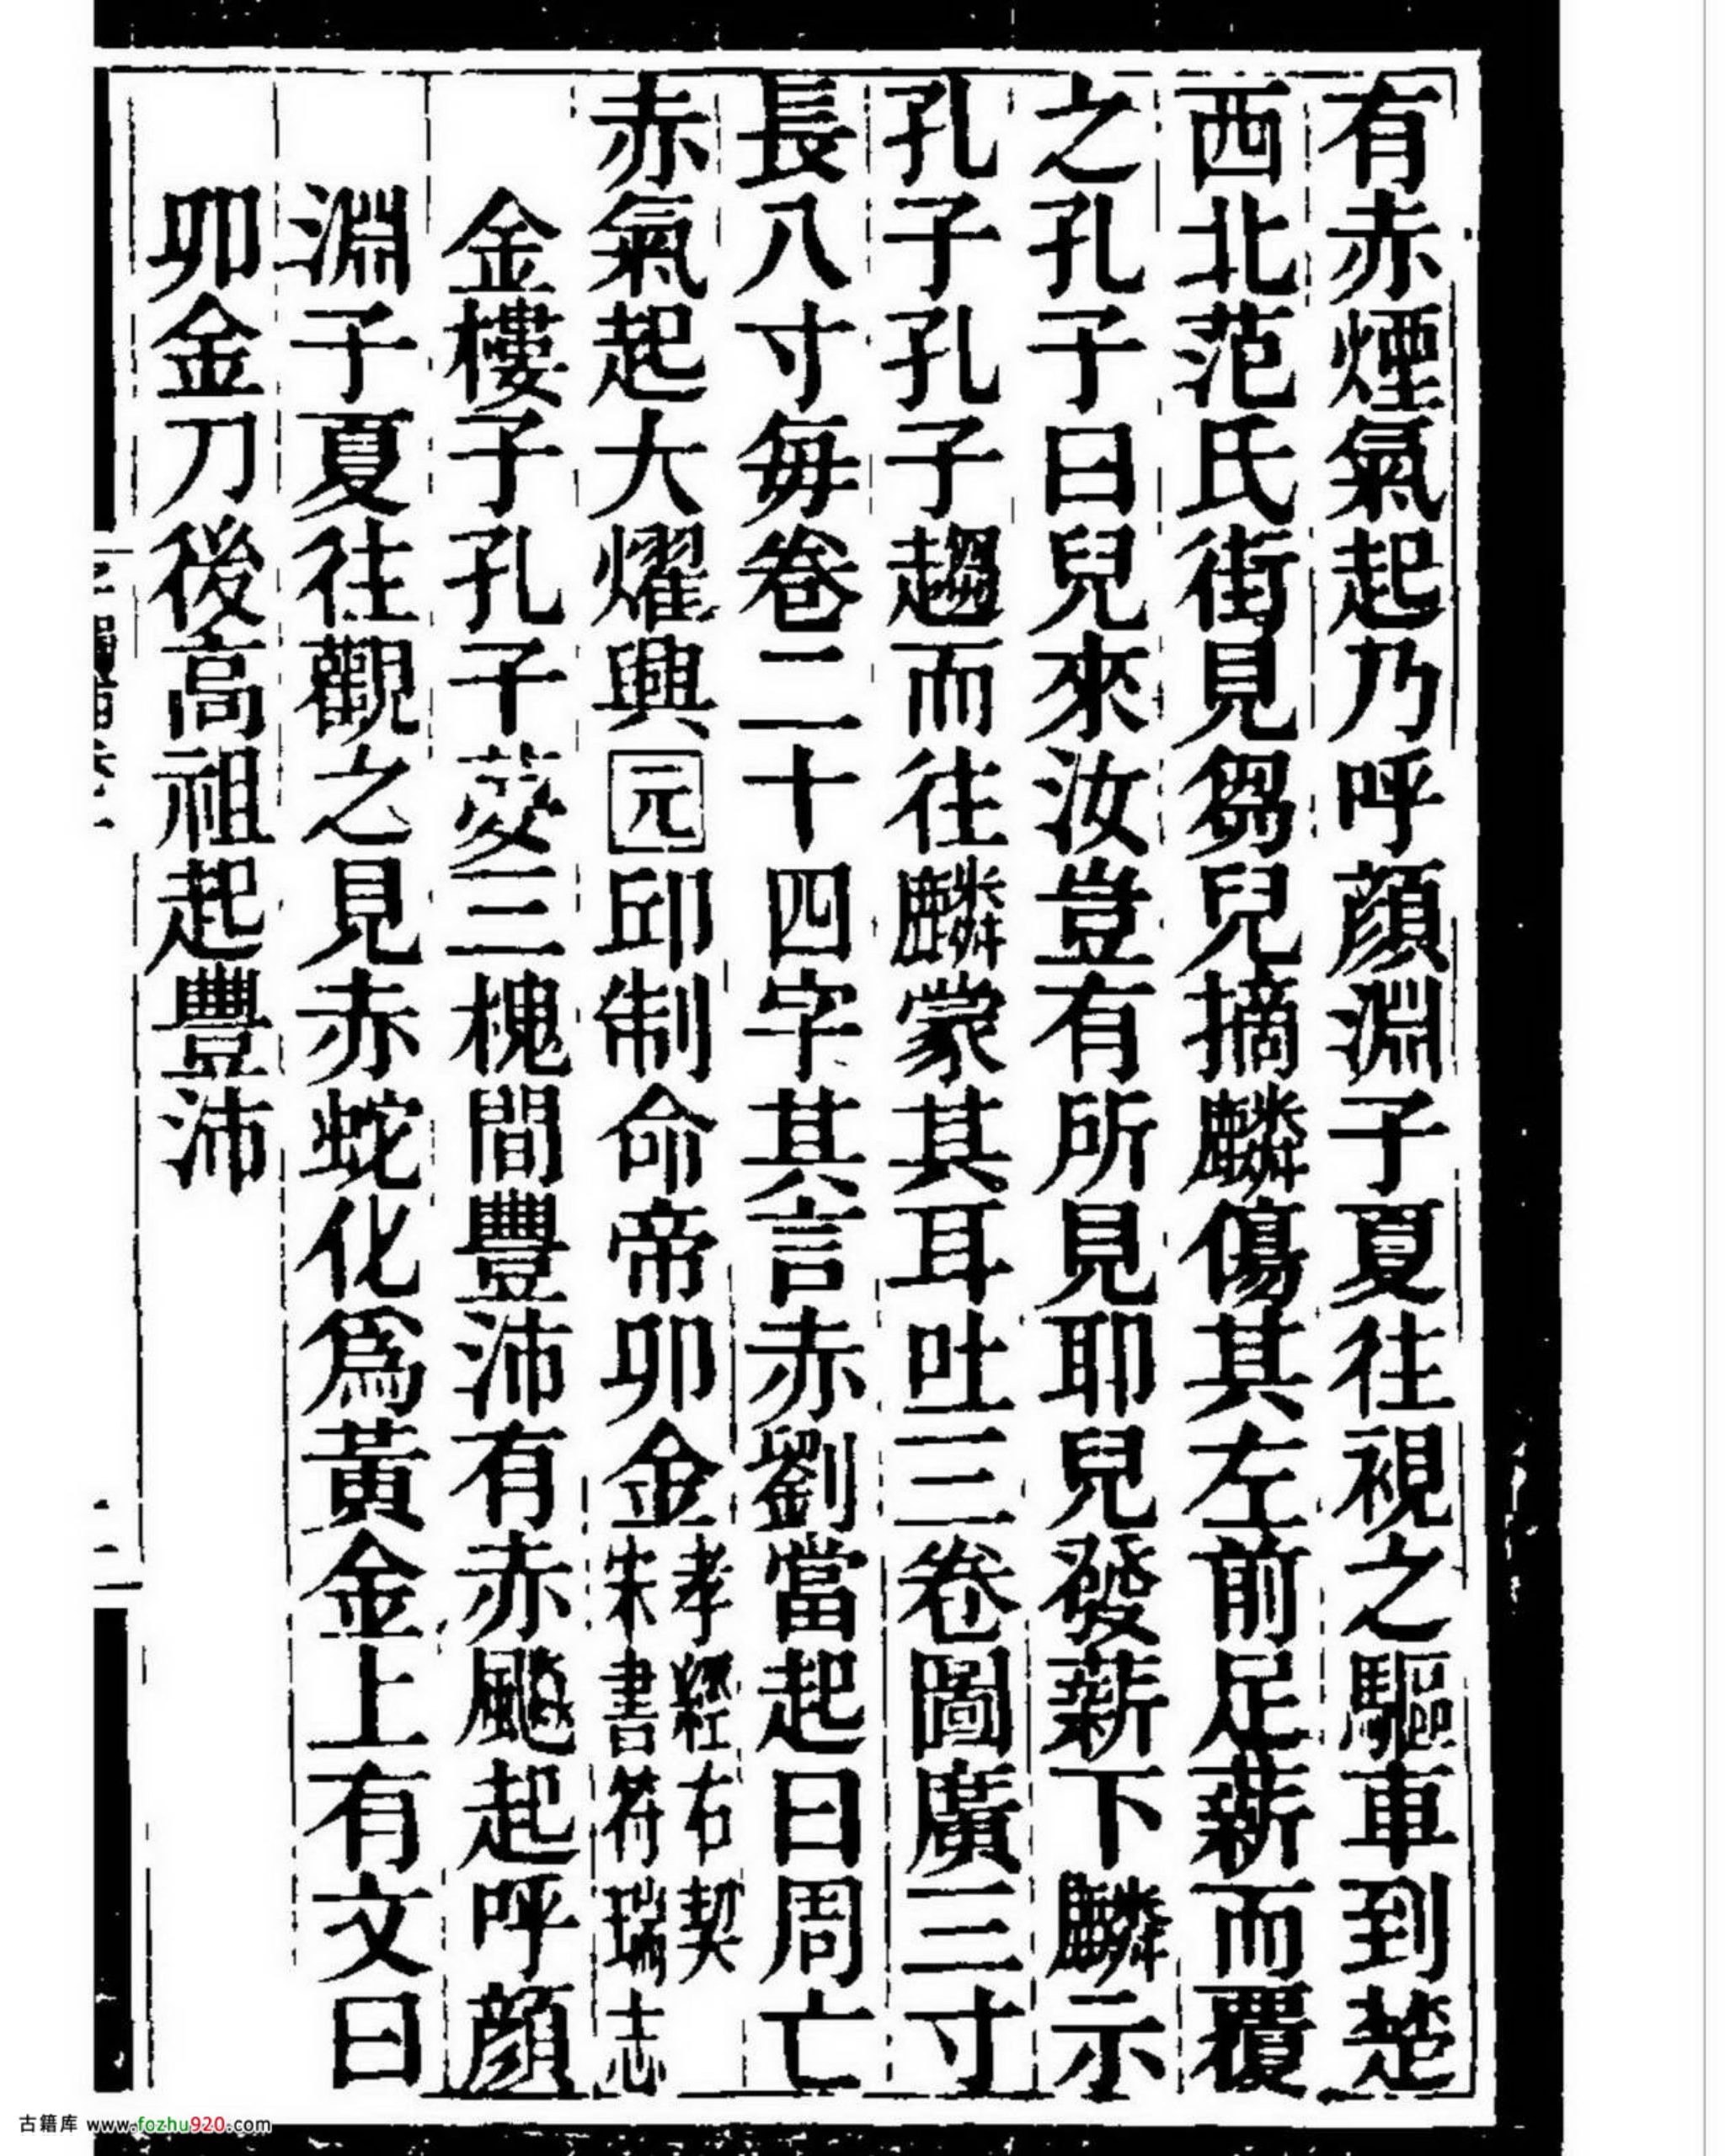 有赤煙氣起乃呼顏淵子夏往視之驅車到楚
西北范氏街見芻兒摘麟傷其左前足薪而覆
之孔子曰兒來汝豈有所見耶兒發薪下麟示
孔子孔子趨而往麟蒙其耳吐三卷圖廣三寸
長八寸每卷二十四字其言赤劉當起曰周亡
赤氣起大燿興元邱制命帝卯金孝經右契宋書符瑞志
金樓子孔子夢三槐間豐沛有赤颷起呼顏
淵子夏往觀之見赤蛇化爲黃金上有文曰
卯金刀後高祖起豐沛
二
古籍库 www.fozhu920.com